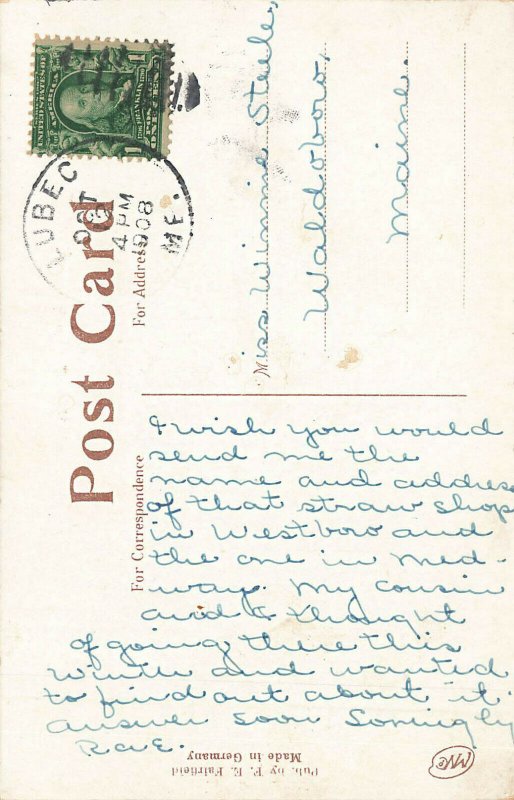 UNITED STATES OF AMERICA
ONE CENT
LUBEC
OCT
4 PM
1908
ME.
Post Card
For Address
Miss Winnie Steele,
Waldoboro,
Maine.
For Correspondence
I wish you would
send me the
name and address
of that straw shop
in Westboro and
the one in Med-
way. My cousin
and I thought
of going there this
Winter and wanted
to find out about it.
Answer soon Lovingly
Rae.
Pub. by F. E. Fairfield
Made in Germany